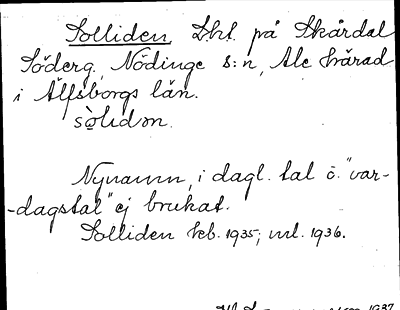 Solliden Lht. på Skårdal
Söderg., Nödinge s:n, Ale härad
i Älfsborgs län.
sòlidən.
Nynamn, i dagl. tal o. "var-
-dagstal" ej brukat.
Solliden kb. 1935; ml. 1936.
1937